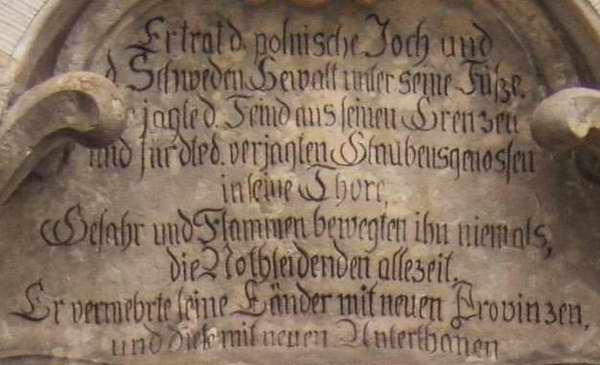 Ertrat d. polnische Joch und
d. Schweden Gewalt unter seine Füße.
jagte d. Feind aus seinen Grenzen
und fürdte d. verjagten Glaubensgenossen
in seine Thore,
Gefahr und Flammen bewegten ihn niemals,
die Nothleidenden allezeit.
Er vermehrte seine Länder mit neuen Provinzen,
und diese mit neuen Unterthanen